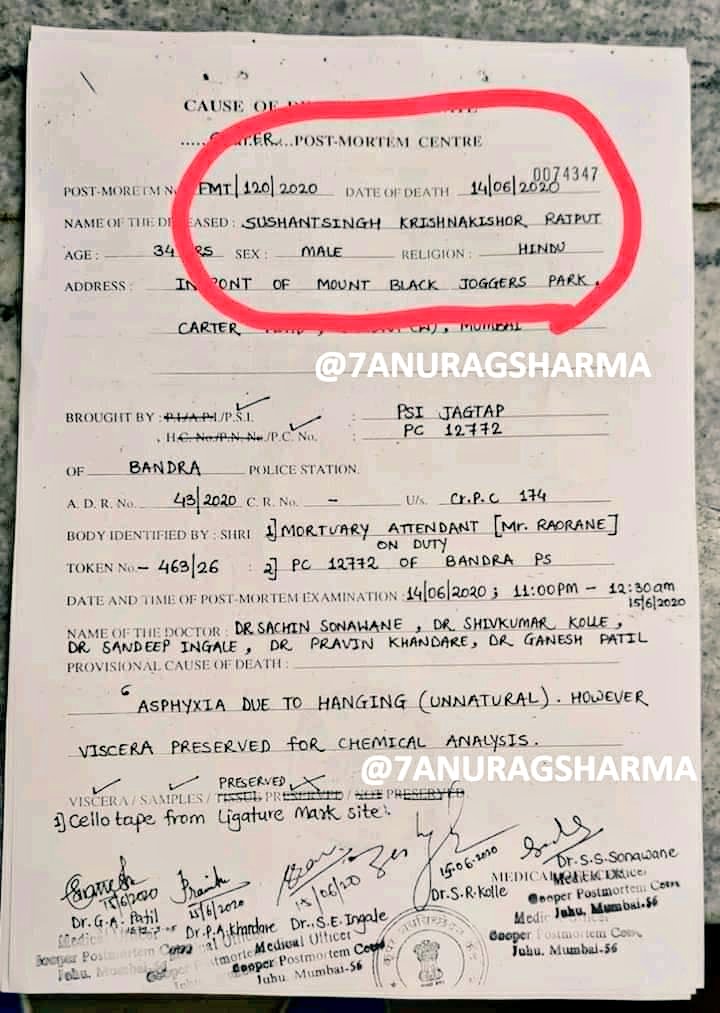 CAUSE OF
POST-MORTEM CENTRE
0074347
POST-MORETM N EMT/120/2020 DATE OF DEATH 14/06/2020
NAME OF THE DECEASED : SUSHANTSINGH KRISHNAKISHOR RAJPUT
AGE : 34 YRS SEX : MALE RELIGION : HINDU
ADDRESS : IN FRONT OF MOUNT BLACK JOGGERS PARK,
CARTER MUMBAI
@7ANURAGSHARMA
BROUGHT BY : P.I./A.P.I./P.S.I. : PSI JAGTAP
, H.C. No./P.N. No./P.C. No. : PC 12772
OF BANDRA POLICE STATION.
A. D. R. No. 43/2020 C. R. No. - U/s. Cr.P.C 174
BODY IDENTIFIED BY : SHRI 1] MORTUARY ATTENDANT [Mr. RAORANE]
ON DUTY
TOKEN No.- 463/26 : 2] PC 12772 OF BANDRA PS
DATE AND TIME OF POST-MORTEM EXAMINATION : 14/06/2020 ; 11:00PM - 12:30am
15/6/2020
NAME OF THE DOCTOR : DR SACHIN SONAWANE, DR SHIVKUMAR KOLLE,
DR SANDEEP INGALE, DR PRAVIN KHANDARE, DR GANESH PATIL
PROVISIONAL CAUSE OF DEATH :
ASPHYXIA DUE TO HANGING (UNNATURAL). HOWEVER
VISCERA PRESERVED FOR CHEMICAL ANALYSIS.
@7ANURAGSHARMA
PRESERVED
VISCERA / SAMPLES / TISSUE PRESERVED / NOT PRESERVED
1] Cello tape from Ligature Mask site.
15/6/2020
Dr. G.A. Patil
Medical Officer
Cooper Postmortem
Juhu, Mumbai-56
15/6/2020
Dr. P.A. Khandare
15/06/20
Dr. S.E. Ingale
Medical Officer
Cooper Postmortem
Juhu, Mumbai-56
15-06-2020
Dr. S.R. Kolle
MEDICAL OFFICER
Dr. S.S. Sonawane
Medical Officer
Cooper Postmortem
Juhu, Mumbai-56
Cooper Postmortem
Juhu, Mumbai-56